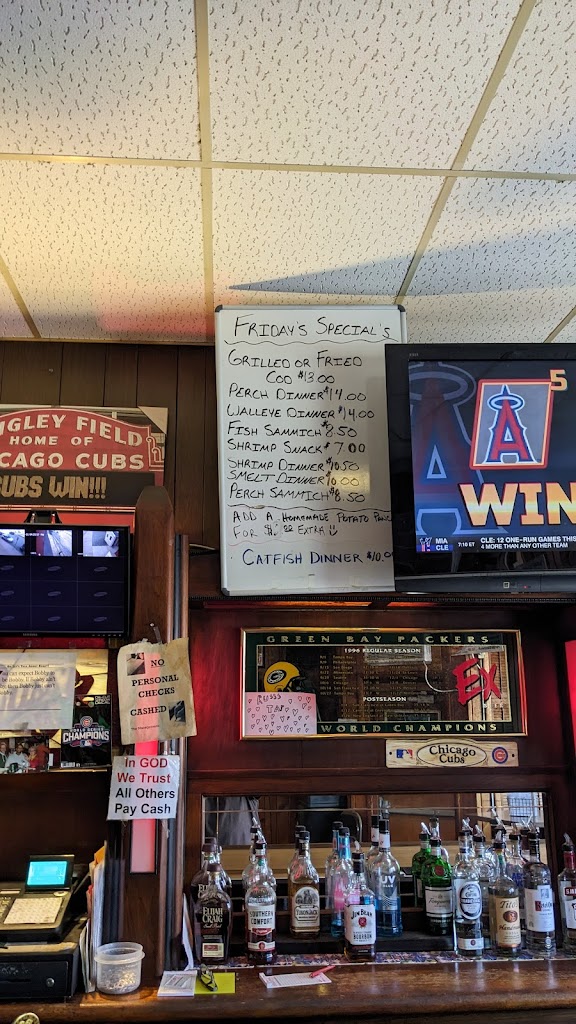 FRIDAY'S SPECIAL'S
GRILLED OR FRIED
COD $13.00
PERCH DINNER $14.00
WALLEYE DINNER $14.00
FISH SAMMICH $8.50
SHRIMP SNACK $7.00
SHRIMP DINNER $10.50
SMELT DINNER $10.00
PERCH SAMMICH $8.50
ADD A HOMEMADE POTATO
FOR EXTRA
CATFISH DINNER $10.00
5
A
WIN
MIA
CLE
7:10 ET
CLE: 12 ONE-RUN GAMES THIS
4 MORE THAN ANY OTHER TEAM
IGLEY FIELD
HOME OF
CAGO CUBS
CUBS WIN!!!
NO
PERSONAL
CHECKS
CASHED
In GOD
We Trust
All Others
Pay Cash
WORLD SERIES
CHAMPIONS
GREEN BAY PACKERS
1996 REGULAR SEASON
POSTSEASON
WORLD CHAMPIONS
EX
Chicago
Cubs
ELIJAH
CRAIG
SOUTHERN
COMFORT
JIM BEAM
BOURBON
UV
Tito's